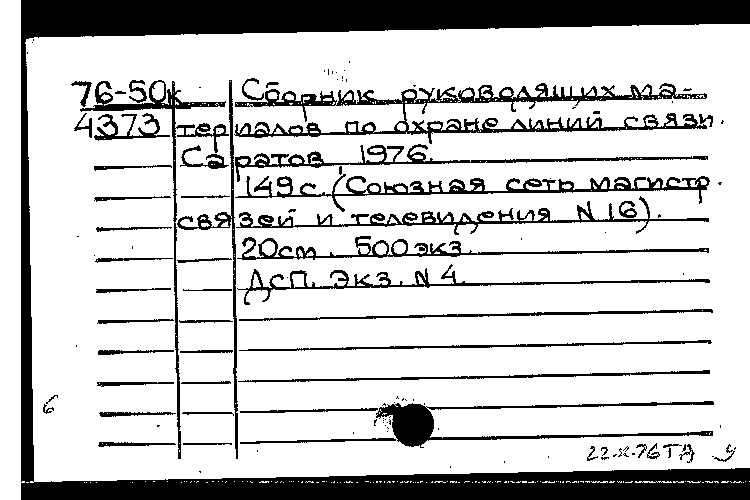 76-50к Сборник руководящих ма-
4373 териалов по охране линий связи.
Саратов 1976.
149 с. (Союзная сеть магистр.
связей и телевидения N 16).
20см. 500 экз.
ДСП. Экз. N 4.
6